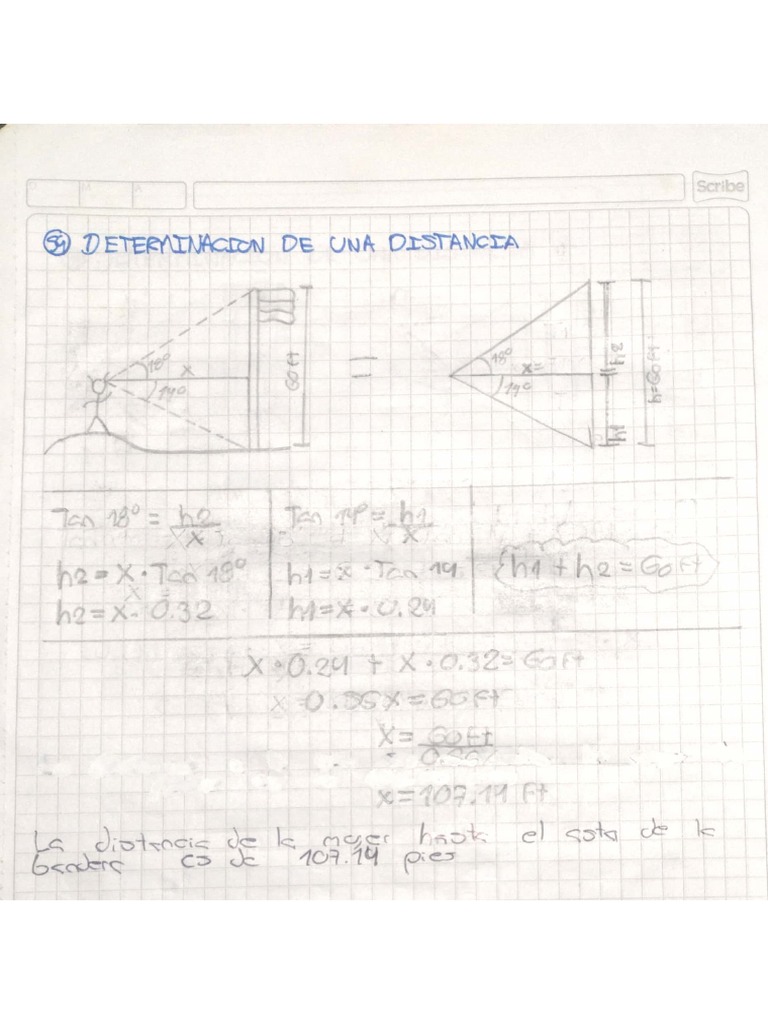 D M A Scribe
54 DETERMINACION DE UNA DISTANCIA
18° x 14° 60 Ft = 18° x= 14° h2 h1 h=60 Ft
Tan 18° = h2/x Tan 14° = h1/x
h2 = x · Tan 18° h1 = x · Tan 14 h1 + h2 = 60 Ft
h2 = x · 0.32 h1 = x · 0.24
x · 0.24 + x · 0.32 = 60 Ft
0.56x = 60 Ft
x = 60 Ft/0.56
x = 107.14 Ft
La distancia de la mujer hasta el asta de la
bandera es de 107.14 pies